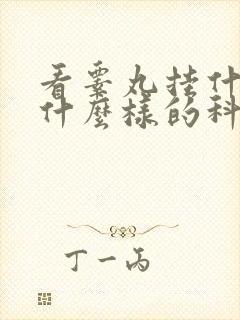 看睾丸挂什
什麼樣的科
丁一丙